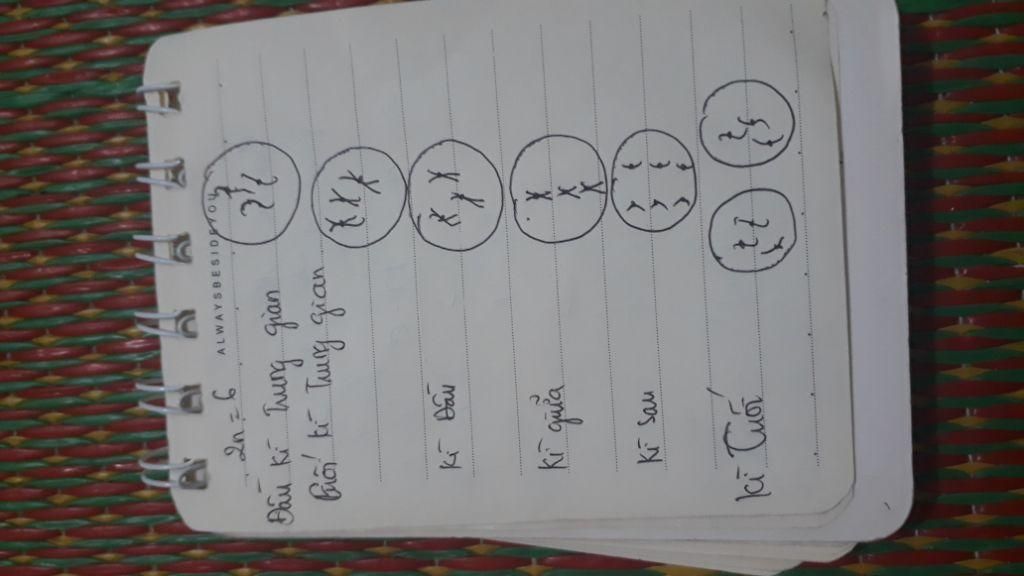 ALWAYSBESIDEYOU
2n = 6
Đầu kì Trung gian
Cuối kì Trung gian
Kì Đầu
Kì giữa
Kì Sau
Kì Cuối